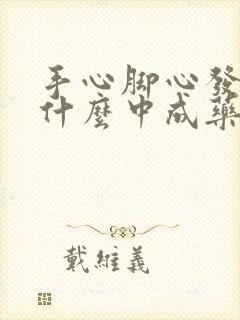 手心脚心發
什麼中成藥
戴維義